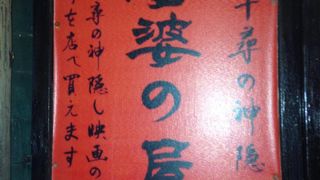 千尋の神隠
婆の居
尋の神隠し映画の
を店で買えます